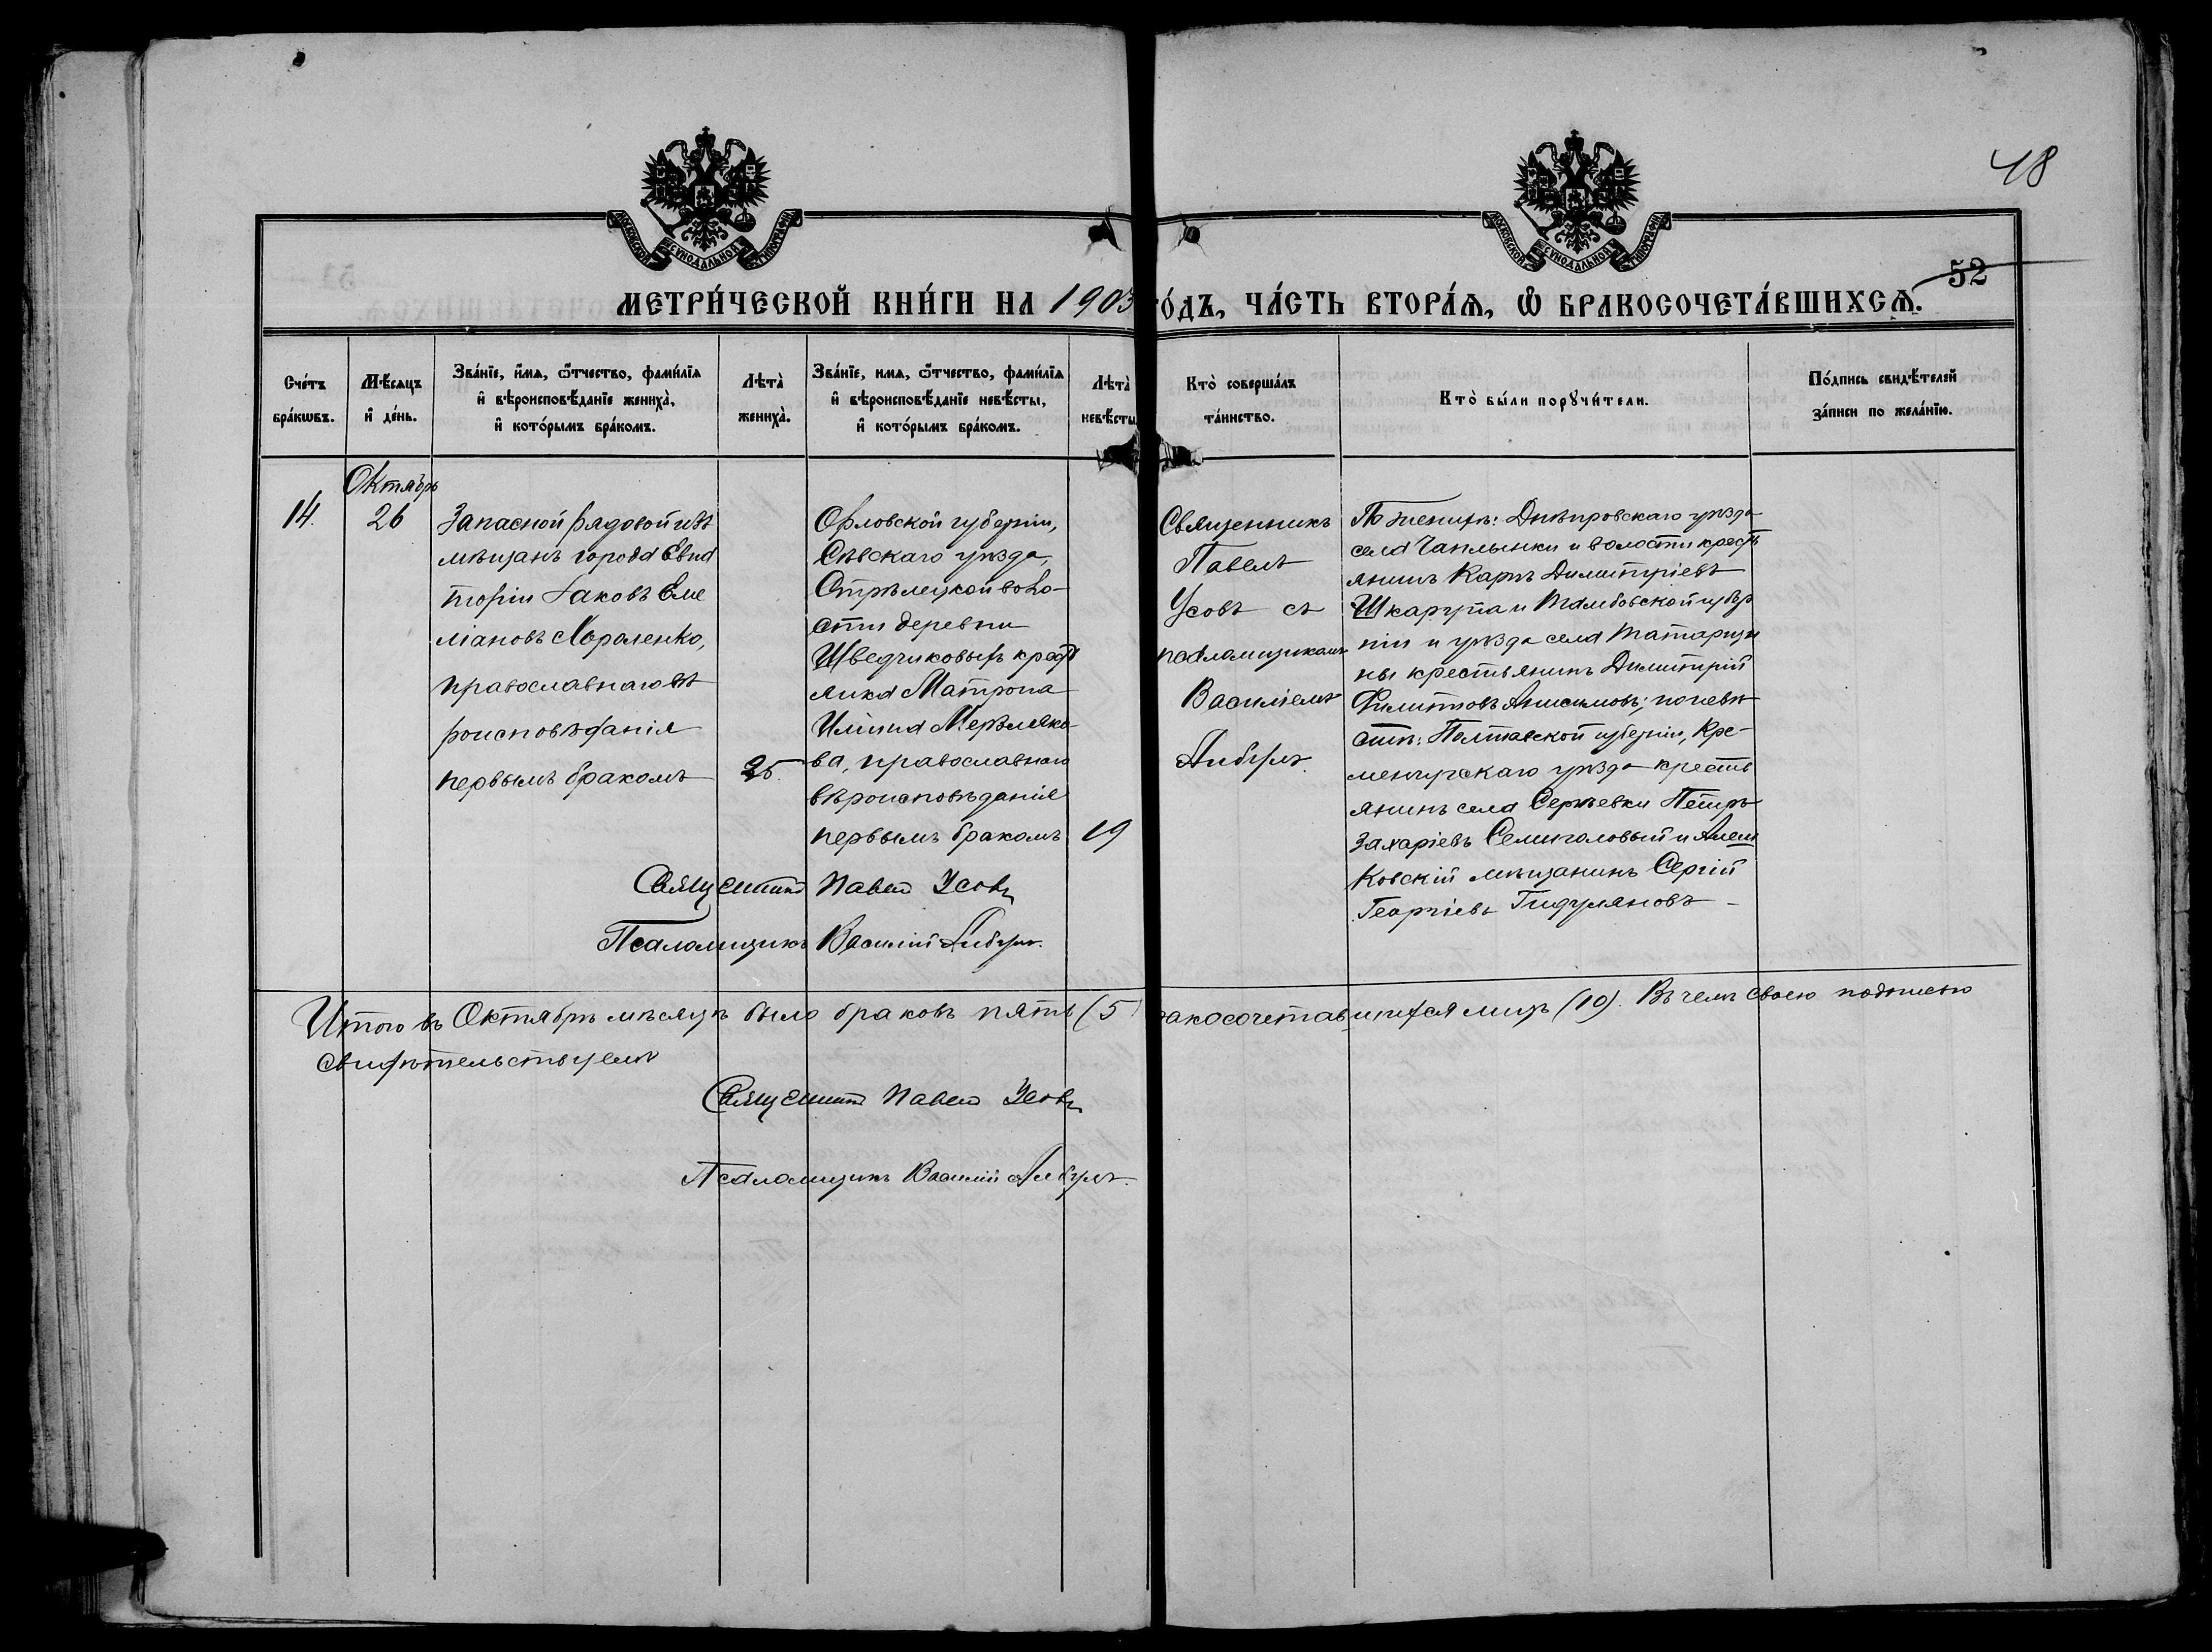 48
52
МОСКОВСКОЙ СѴНОДАЛЬНОЙ ТИПОГРАФІИ
МОСКОВСКОЙ СѴНОДАЛЬНОЙ ТИПОГРАФІИ
МЕТРИ́ЧЕСКОЙ КНИ́ГИ НА 1903 ГО́ДЪ, ЧА́СТЬ ВТОРА́Я, Ѽ БРАКОСОЧЕТА́ВШИХСЯ.
Сче́тъ бра́кѡвъ.
Мѣ́сяцъ и҆ де́нь.
Зва́нїе, и҆́мя, ѻ҆́тчество, фами́лїя и҆ вѣроисповѣ́данїе жениха̀, и҆ кото́рымъ бра́комъ.
Лѣта̀ жениха̀.
Зва́нїе, имя, ѻ҆́тчество, фами́лїя и҆ вѣроисповѣ́данїе невѣ́сты, и҆ кото́рымъ бра́комъ.
Лѣта̀ невѣ́сты
Кто̀ соверша́лъ та́инство.
Кто̀ бы́ли порꙋчи́тели.
По́дпись свидѣ́телей за́писи по жела́нїю.
Октябрь
14.
26
Запасной рядовой изъ
мѣщанъ города Евпа
торіи Іаковъ Еме
ліановъ Хороленко,
православнаго вѣ
роисповѣданія
первымъ бракомъ
25.
Орловской губерніи,
Сѣвскаго уѣзда,
Стрѣлецкой воло-
сти деревни
Шведчиковыхъ крестъ
янка Матрона
Иліина Мерзляко
ва, православнаго
вѣроисповѣданія
первымъ бракомъ
19
Священникъ
Павелъ
Усовъ съ
псаломщикомъ
Василіемъ
По женихѣ: Днѣпровскаго уѣзда
села Чаплынки и волости кресть
янинъ Карпъ Димитріевъ
Шкарупа и Тамбовской губер
ніи и уѣзда села Татарщи
ны крестьянинъ Димитрій
Филипповъ Анисимовъ; по невѣ
стѣ: Полтавской губерніи, Кре-
менчугскаго уѣзда кресть
янинъ села Сергѣевки Петръ
Захаріевъ Семиголовый и Алеш
ковскій мѣщанинъ Сергій
Георгіевъ Гидуляновъ
Священникъ Павелъ Усовъ
Псаломщикъ Василій
Итого въ Октябрѣ мѣсяцѣ было браковъ пять (5) бракосочетавшихся лицъ (10). Въ чемъ своею подписью
свидѣтельствуемъ
Священникъ Павелъ Усовъ
Псаломщикъ Василій